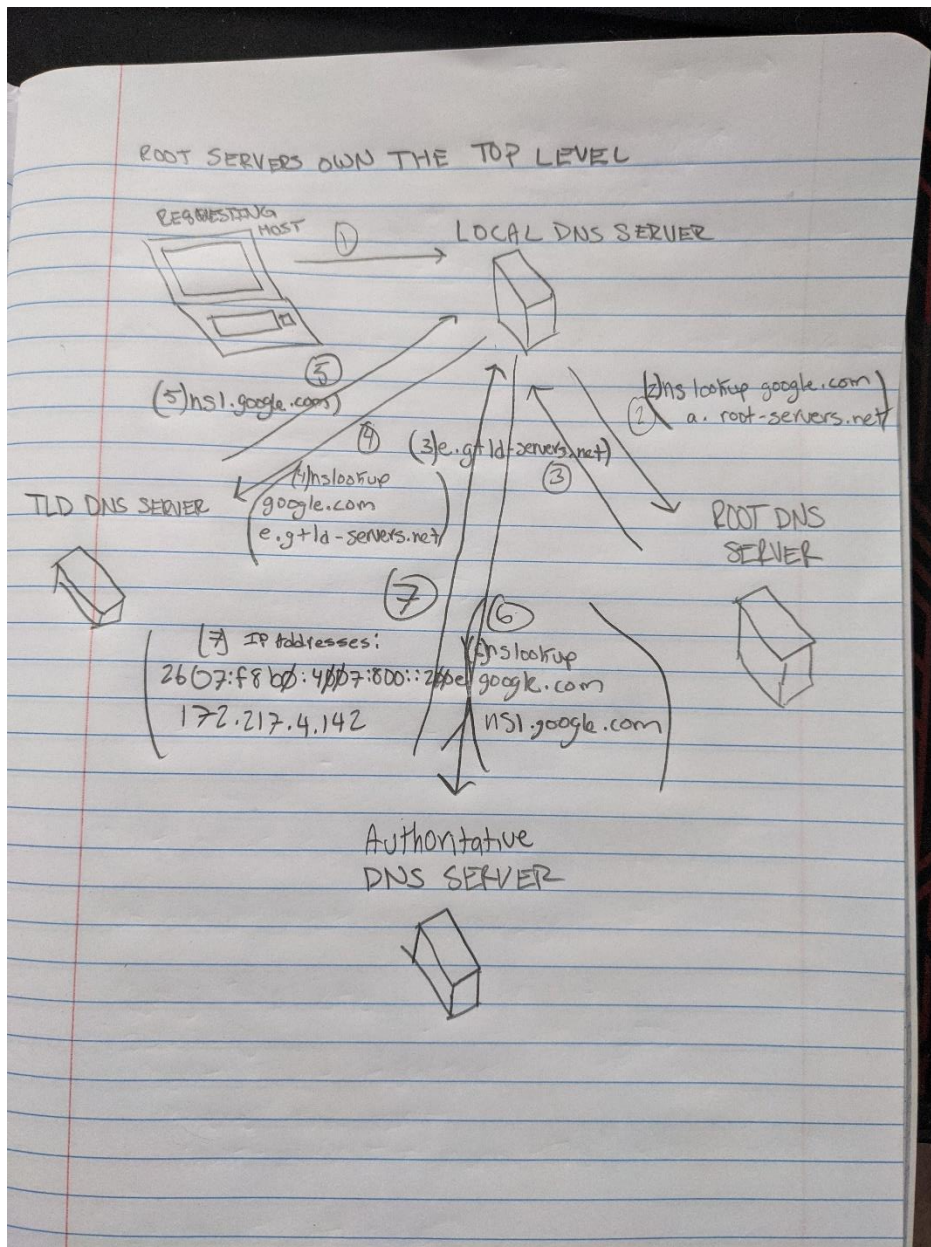 ROOT SERVERS OWN THE TOP LEVEL
REQUESTING
HOST
①
LOCAL DNS SERVER
(2)nslookup google.com
② a.root-servers.net
⑤
(5)ns1.google.com)
④
(3)e.gtld-servers.net)
③
(4)nslookup
google.com
e.gtld-servers.net
TLD DNS SERVER
ROOT DNS
SERVER
⑦
⑥
(7) IP Addresses:
2607:f8b0:4007:800::200e
172.217.4.142
(6)nslookup
google.com
ns1.google.com
Authoritative
DNS SERVER